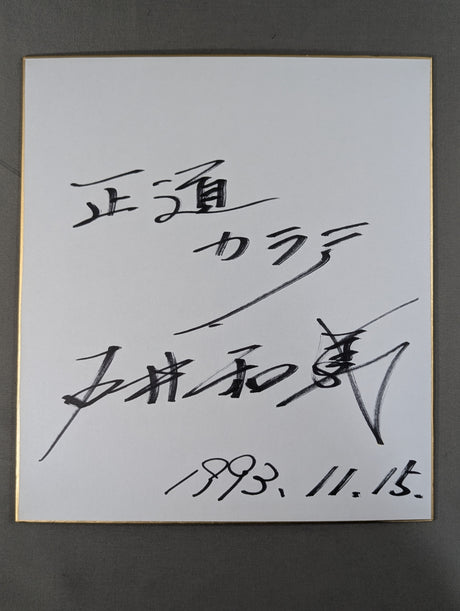 正道
カラテ
石井和義
1993.11.15.